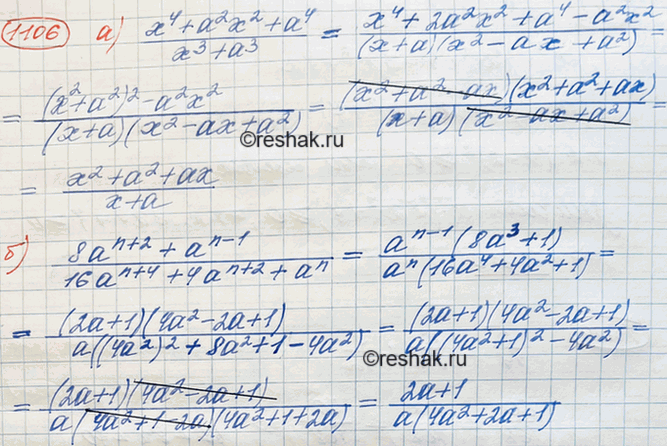 1106 а) (x⁴ + a²x² + a⁴)/(x³ + a³) = (x⁴ + 2a²x² + a⁴ − a²x²)/((x + a)(x² − ax + a²)) =
= ((x² + a²)² − a²x²)/((x + a)(x² − ax + a²)) = ((x² + a² − ax)(x² + a² + ax))/((x + a)(x² − ax + a²)) =
©reshak.ru
= (x² + a² + ax)/(x + a)
б) (8aⁿ⁺² + aⁿ⁻¹)/(16aⁿ⁺⁴ + 4aⁿ⁺² + aⁿ) = (aⁿ⁻¹(8a³ + 1))/(aⁿ(16a⁴ + 4a² + 1)) =
= ((2a + 1)(4a² − 2a + 1))/(a((4a²)² + 8a² + 1 − 4a²)) = ((2a + 1)(4a² − 2a + 1))/(a((4a² + 1)² − 4a²)) =
©reshak.ru
= ((2a + 1)(4a² − 2a + 1))/(a(4a² + 1 − 2a)(4a² + 1 + 2a)) = (2a + 1)/(a(4a² + 2a + 1))